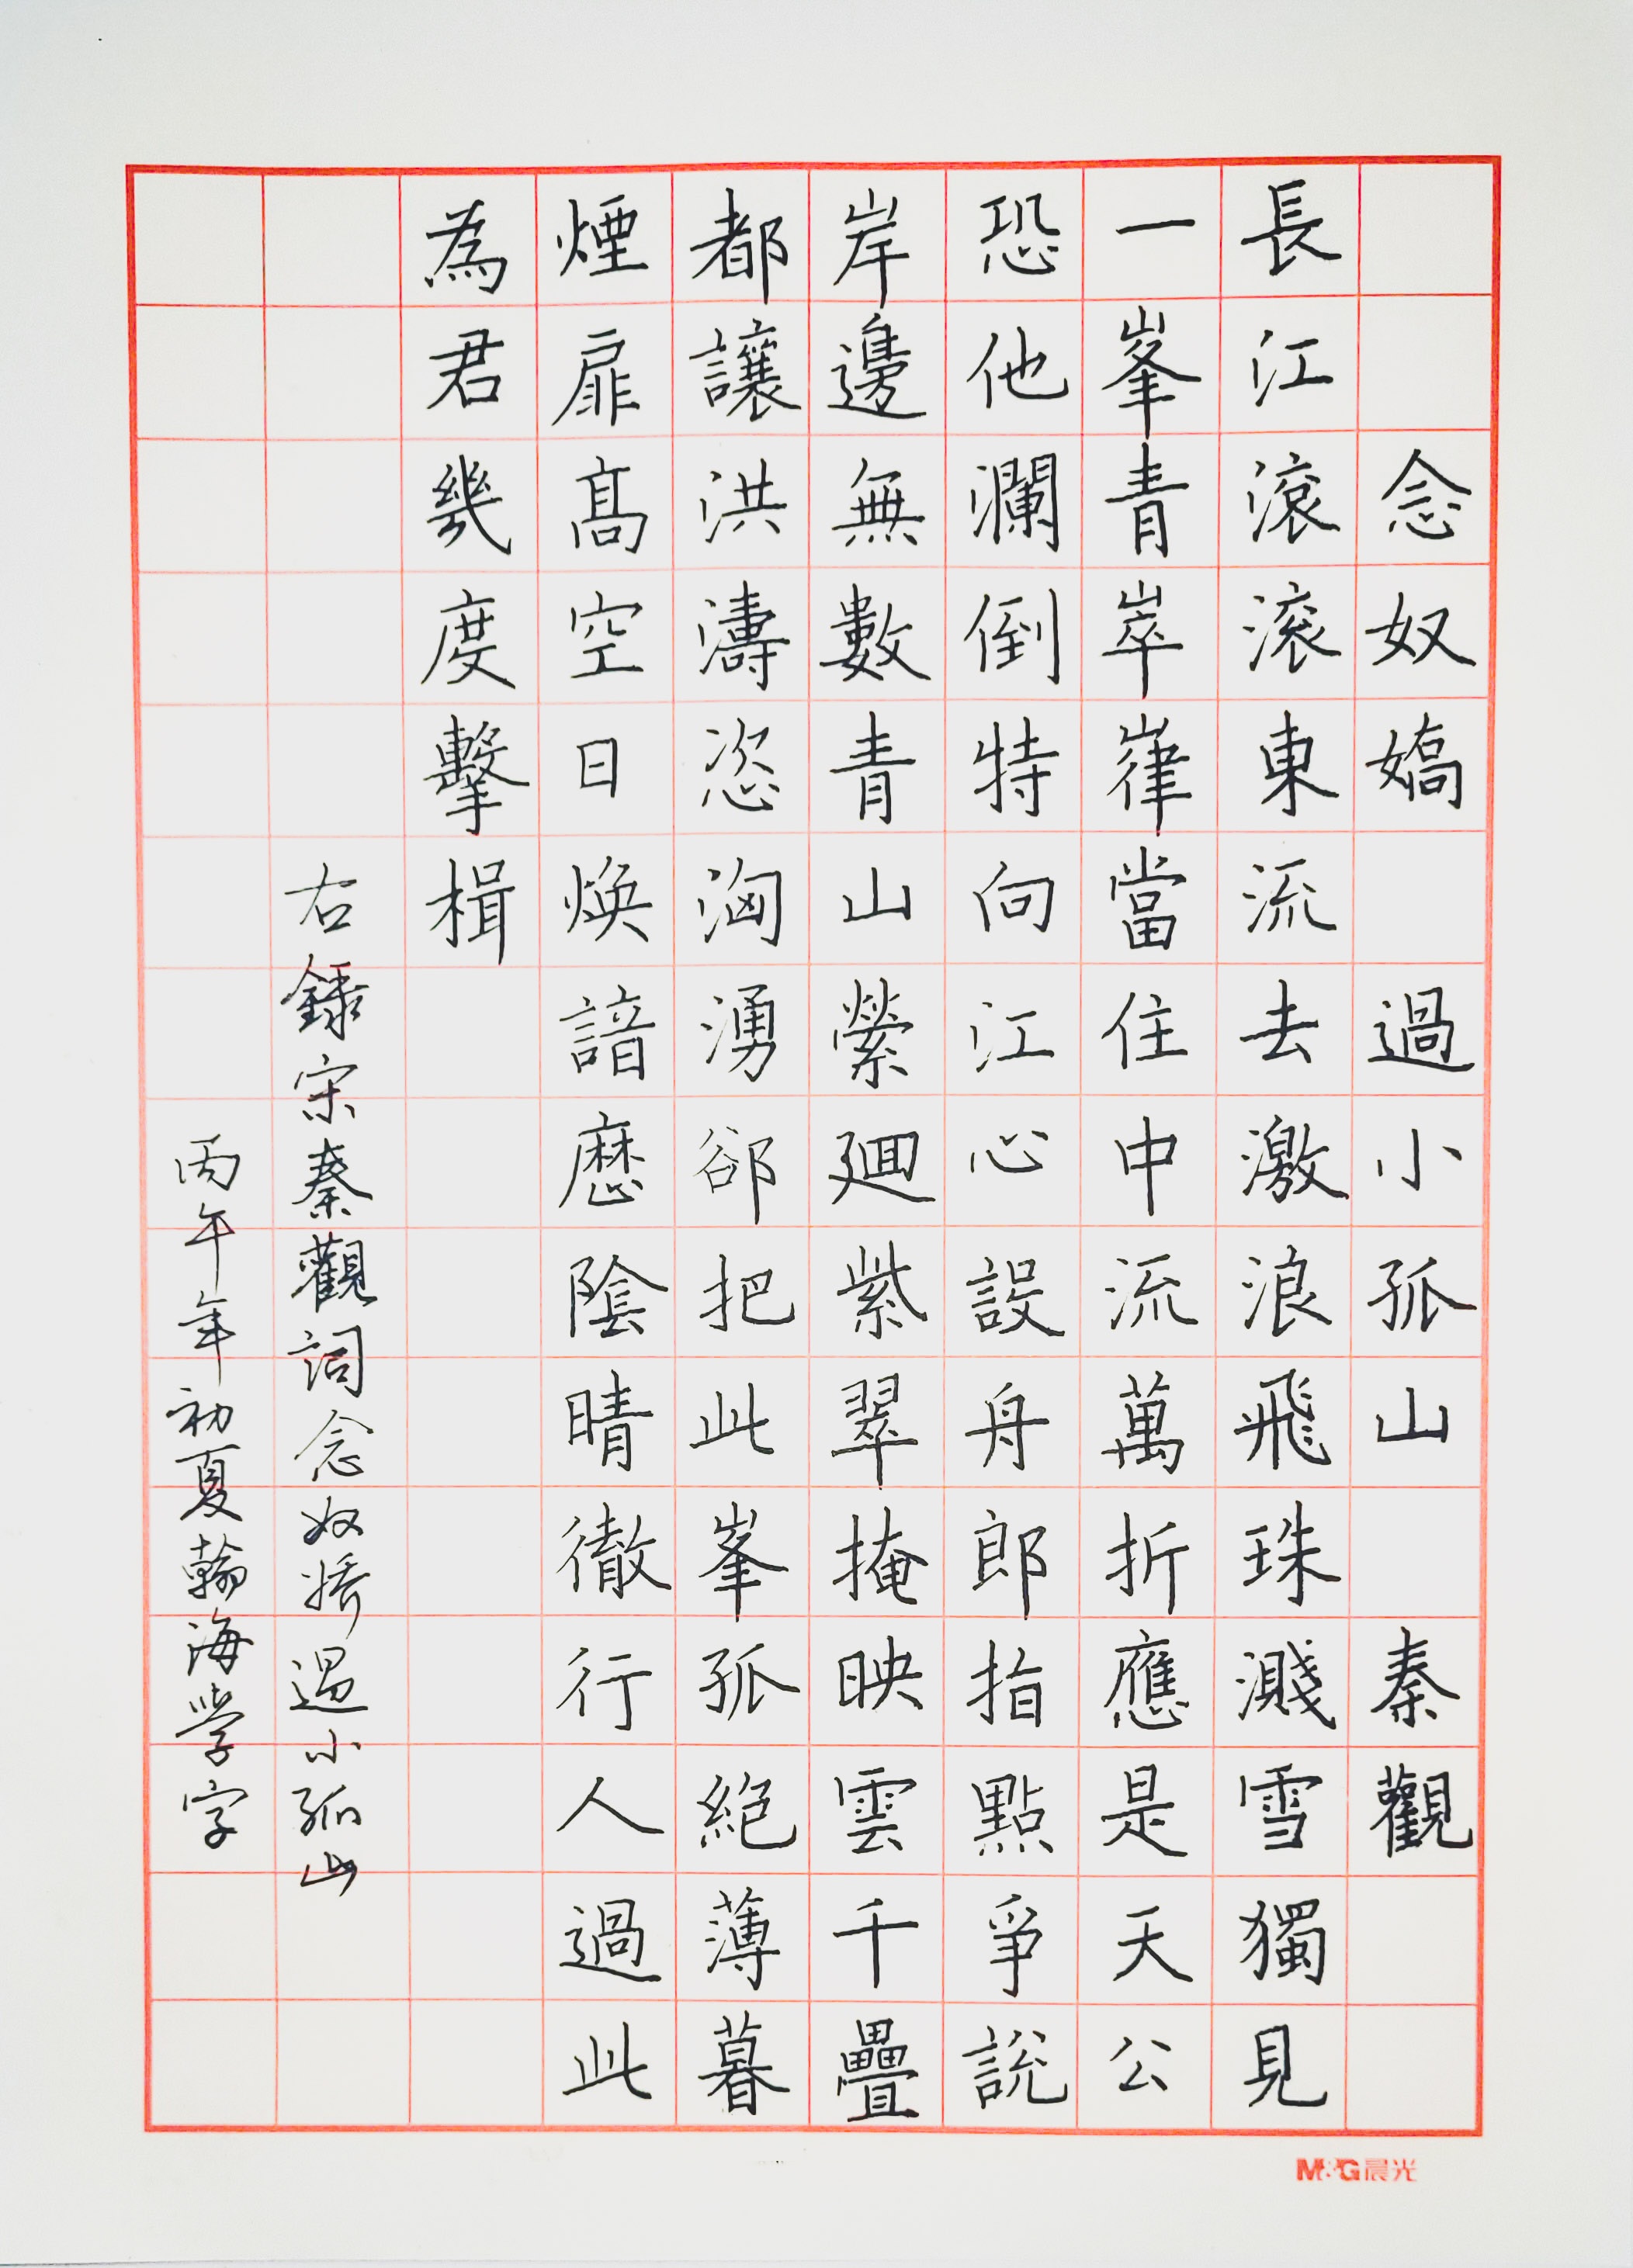 念奴嬌 過小孤山 秦觀
長江滾滾東流去激浪飛珠濺雪獨見
一峯青崒嵂當住中流萬折應是天公
恐他瀾倒特向江心設舟郎指點爭説
岸邊無數青山縈廻紫翠掩映雲千疊
都讓洪濤恣洶湧郤把此峯孤絕薄暮
煙扉髙空日煥諳歷陰晴徹行人過此
為君幾度擊楫
右録宋秦觀詞念奴嬌過小孤山
丙午年初夏翰海學字
M&G晨光